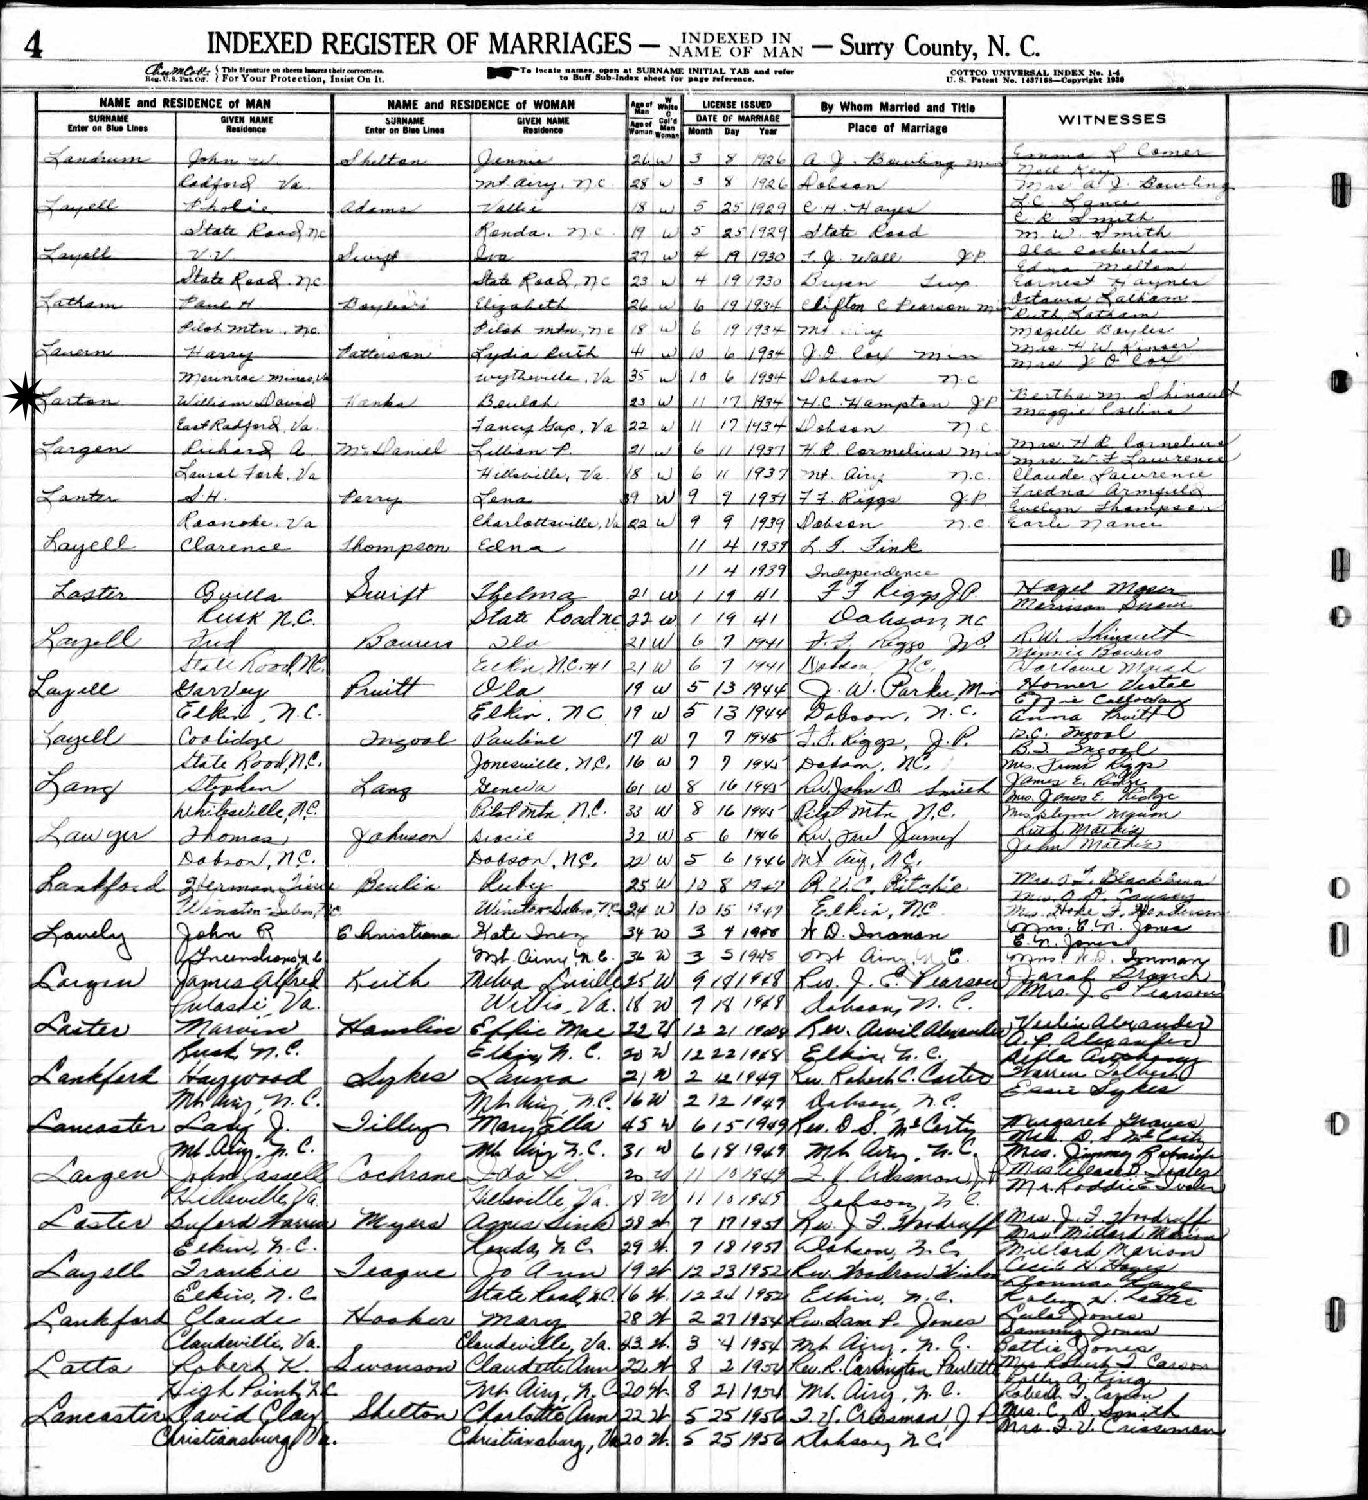 4
INDEXED REGISTER OF MARRIAGES — INDEXED IN NAME OF MAN — Surry County, N. C.
This Signature on sheets insures their correctness. For Your Protection, Insist On It.
To locate names, open at SURNAME INITIAL TAB and refer to Buff Sub-Index sheet for page reference.
COTTCO UNIVERSAL INDEX No. 1-4
U. S. Patent No. 1437168—Copyright 1930
NAME and RESIDENCE of MAN NAME and RESIDENCE of WOMAN Age of Man Age of Woman W White C Col'd Man Woman LICENSE ISSUED DATE OF MARRIAGE By Whom Married and Title Place of Marriage WITNESSES
SURNAME Enter on Blue Lines GIVEN NAME Residence SURNAME Enter on Blue Lines GIVEN NAME Residence Month Day Year
Landrum John W. Shelton Jennie 26 W 3 8 1926 A. J. Bowling Min Emma L Comer
Nell Key
Radford Va. Mt. Airy, N.C. 28 W 3 8 1926 Dobson Mrs A. J. Bowling
Layell Adams Vallie 18 W 5 25 1929 C. H. Hayes L.C. Lance
C R Smith
State Road, NC Ronda, N.C. 19 W 5 25 1929 State Road M. W. Smith
Layell V.V. Swift Iva 27 W 4 19 1930 Wall J.P. Ila Cockerham
Edna Melton
State Road, NC State Road, NC 23 W 4 19 1930 Bryan Twp Earnest Haynes
Latham Paul H Elizabeth 26 W 6 19 1934 Clifton C Pearson Min Octavia Latham
Ruth Latham
Pilot Mtn, NC. Pilot Mtn, NC 18 W 6 19 1934 Mt Airy Mozelle Boyles
Lavern Harry Patterson Lydia Ruth 41 W 10 6 1934 J. O. Cox Min Mrs H W Kinser
Mrs J O Cox
Va Wytheville, Va 35 W 10 6 1934 Dobson N C
Larton William David Hanks Beulah 23 W 11 17 1934 H.C. Hampton JP Bertha M. Shinault
Maggie Collins
East Radford, Va. Fancy Gap, Va 22 W 11 17 1934 Dobson N.C.
Largen Richard A. McDaniel Lillian P. 21 W 6 11 1937 H R Cornelius Min Mrs. H R Cornelius
Mrs. W F Lawrence
Laurel Fork, Va Hillsville, Va. 18 W 6 11 1937 Mt. Airy N.C. Claude Lawrence
Lanter S.H. Perry Lena 39 W 9 9 1939 F F Riggs J.P. Fredna Armfield
Evelyn Thompson
Roanoke, Va Charlottsville, Va 22 W 9 9 1939 Dobson N.C. Earle Nance
Layell Clarence Thompson Edna 11 4 1939 L. F. Fink
11 4 1939 Independence
Laster Swift Thelma 21 W 1 19 41 F F Riggs JP Hazel Moser
Rusk N.C. State Road NC 22 W 1 19 41 Dobson, NC
Layell Bowers Ila 21 W 6 7 1941 F. F. Riggs J.P. R.W. Shinault
Minnie Bowers
State Road, N.C. Elkin, N.C. #1 21 W 6 7 1941 Dobson, N.C.
Layell Garvey Pruitt Ola 19 W 5 13 1944 J. W. Parker, Min Homer Vestal
Effie Calloway
Elkin, N.C. Elkin, NC 19 W 5 13 1944 Dobson, N.C. Anna Pruitt
Layell Coolidge Ingool Pauline 17 W 7 7 1945 F. F. Riggs, J.P. D.C. Ingool
B.I. Ingool
State Road, N.C. Jonesville, N.C. 16 W 7 7 1945 Dobson, N.C. Mrs. Riggs
Lang Stephen Lang Geneva 61 W 8 16 1945 Rev John D. Smith James E. Ridge
Mrs. James E. Ridge
Whitesville, N.C. Pilot Mtn, N.C. 33 W 8 16 1945 Pilot Mtn, N.C.
Lawyer Thomas Johnson 32 W 5 6 1946 Ruth Mathis
John Mathis
Dobson, N.C. Dobson, N.C. 22 W 5 6 1946 Mt Airy, N.C.
Lankford Herman Ruby 25 W 10 8 1947 R.V.C. Ritchie Mrs. Blackburn
Winston-Salem, NC Winston Salem, NC 24 W 10 15 1947 Elkin, NC Mrs. Hoke F. Henderson
Lavely John R Christiana Kate Inez 34 W 3 4 1948 H D. Inman Mrs. E. N. Jones
E. N. Jones
Greensboro N.C. Mt. Airy, N.C. 36 W 3 5 1948 Mt Airy N.C. Mrs H.D. Inman
Largen James Alfred Keith Melva Lucille 25 W 9 18 1948 Rev. J. E. Pearson Sarah Branch
Mrs. J E Pearson
Pulaski, Va. Willis, Va. 18 W 9 18 1948 Dobson, N.C.
Laster Marvin Hamlin Effie Mae 22 W 12 21 1948 Rev. Arvil Alexander Verlin Alexander
A. P. Alexander
Rusk, N.C. Elkin, N.C. 20 W 12 22 1948 Elkin, N.C. Della Anthony
Lankford Haywood Sykes Launa 21 W 2 12 1949 Rev Robert C. Carter Warren Tolbert
Essie Sykes
Mt. Airy, N.C. Mt. Airy, N.C. 16 W 2 12 1949 Dobson, N.C.
Lancaster Lacy J. Tilley Mary Ella 45 W 6 15 1949 Rev. D. S. McCarty Margaret Graves
Mrs. D. S McCarty
Mt. Airy, N.C. Mt. Airy N.C. 31 W 6 18 1949 Mt. Airy, N.C. Mrs. Jimmy
Largen John Cassell Cochrane Ida G. 20 W 11 10 1949 F. V. Crissman, J.P.
Hillsville, Va. Hillsville, Va. 18 W 11 10 1949 Dobson, N.C.
Laster Buford Warren Myers Agnes Sink 28 W. 7 17 1951 Rev. J. F. Woodruff Mrs J. F. Woodruff
Mrs. Millard Marion
Elkin, N.C. Ronda, N.C. 29 W. 7 18 1951 Dobson, N.C. Millard Marion
Layell Frankie Teague Jo Ann 19 W 12 23 1952 Rev. Woodrow Cecil H. Hayes
Elkin, N.C. State Road, N.C. 16 W. 12 24 1952 Elkin, N.C.
Lankford Claude Hooker Mary 28 W 2 27 1954 Rev. Sam P. Jones Lula Jones
Sammy Jones
Claudeville, Va. Claudeville, Va. 43 W. 3 4 1954 Mt. Airy, N.C. Bettie Jones
Latta Robert K. Swanson Claudette Ann 22 W 8 2 1954 Rev. R. Carrington Paulette Mrs Robert F. Carson
Polly A. King
High Point, N.C Mt. Airy, N.C. 20 W. 8 21 1954 Mt. Airy, N.C. Robert F. Carson
Lancaster David Clay Shelton Charlotte Ann 22 W. 5 25 1956 F. V. Crissman, J P Mrs. C. D. Smith
Mrs. F. V. Crissman
Christiansburg, Va. Christiansburg, Va 20 W. 5 25 1956 Dobson, N.C.